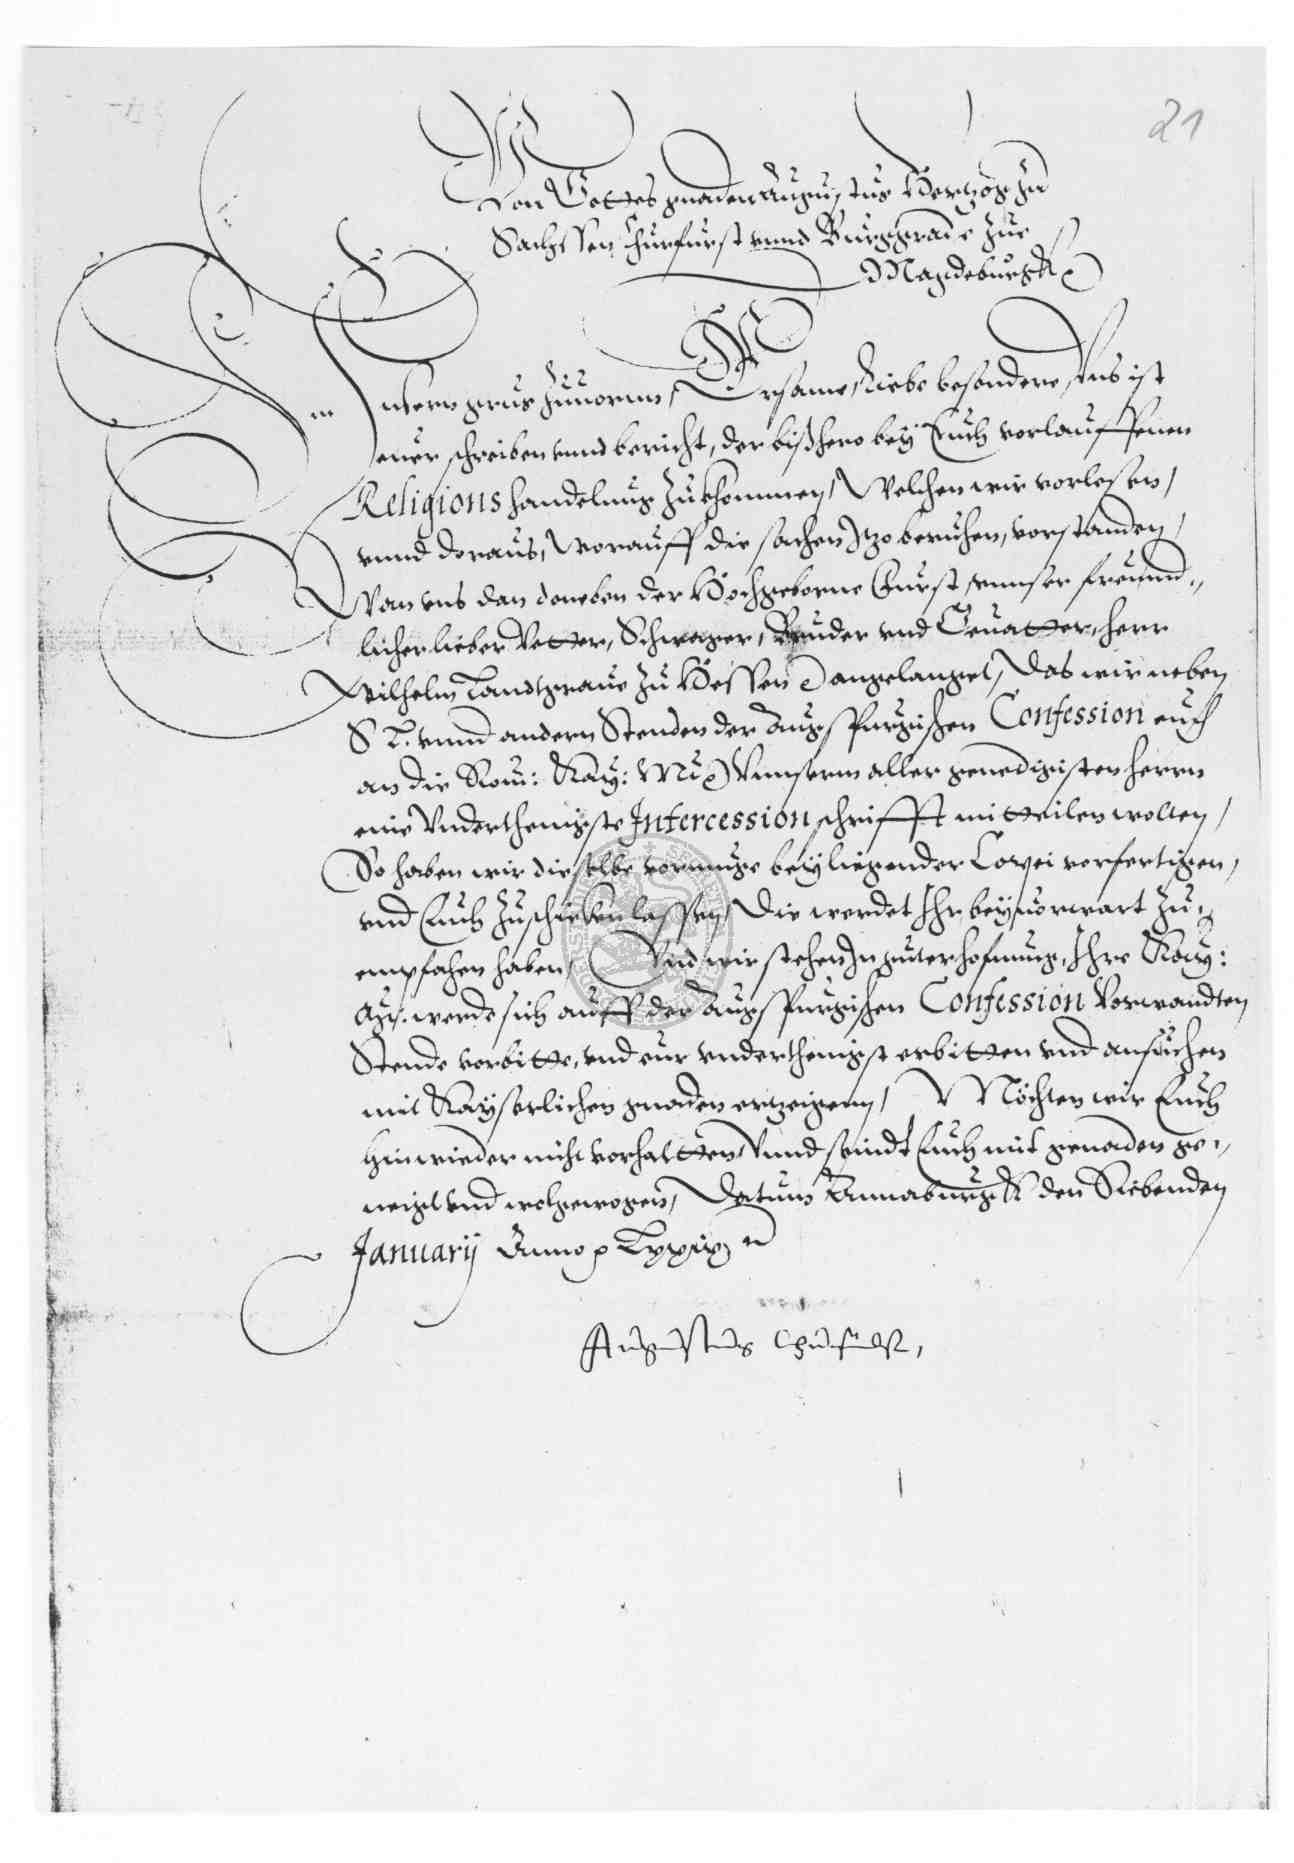 21
Von Gottes gnaden Augustus Hertzog zu
Sachssen Churfurst vnnd Burggraue zue
Magdeburgk
Vnsern grus zuuornn, Ersame, Liebe besondere, Vns ist
euer schreiben vnnd bericht, der bißhero bey Euch vorlauffenen
Religions handelung zukhommen, Welchen wir vorlesen,
vnnd doraus, worauff die sachen Itzo beruhen, vorstanden,
Wan vns dan doneben der Hochgeborne Furst, vnnser freund„
licher lieber Vetter, Schwager, Bruder vnd Geuatter, herr
Wilhelm Landtgraue zu Hessen angelanget, Das wir neben
S L. vnnd andern Stenden der Augspurgischen Confession euch
an die Rom: Kay: Mt Vnnserm aller genedigisten herrn
eine Vnderthenigste Intercession schrifft mitteilen wolten,
So haben wir dieselbe vormuge beyliegender Copei vorfertigen,
vnd Euch zuschicken lassen, Die werdet Ihr beyuorwart zu„
empfahen haben, Vnd wir stehen In guter hofnung, Ihre Kay:
Mt: werde sich auff der Augspurgischen Confession Vorwandten
Stende vorbitte, vnd eur vnderthenigst erbitten vnd ansuchen
mit Kayserlichen gnaden ertzeigenn, Möchten wir Euch
hinwieder nicht vorhaltten Vnnd seindt Euch mit genaden ge„
neigt vnd wolgewogen, Datum Annaburgk den Siebenden
Januarij Anno
Augustus Churfurst,